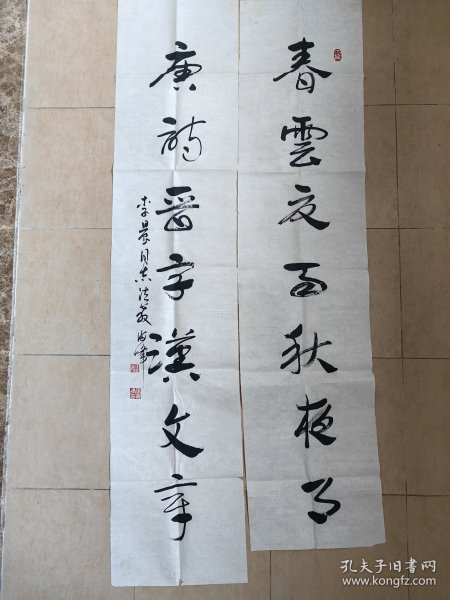 春雲夏雨秋夜月
唐詩晋字漢文章
李晨同志法教
孔夫子旧书网
www.kongfz.com